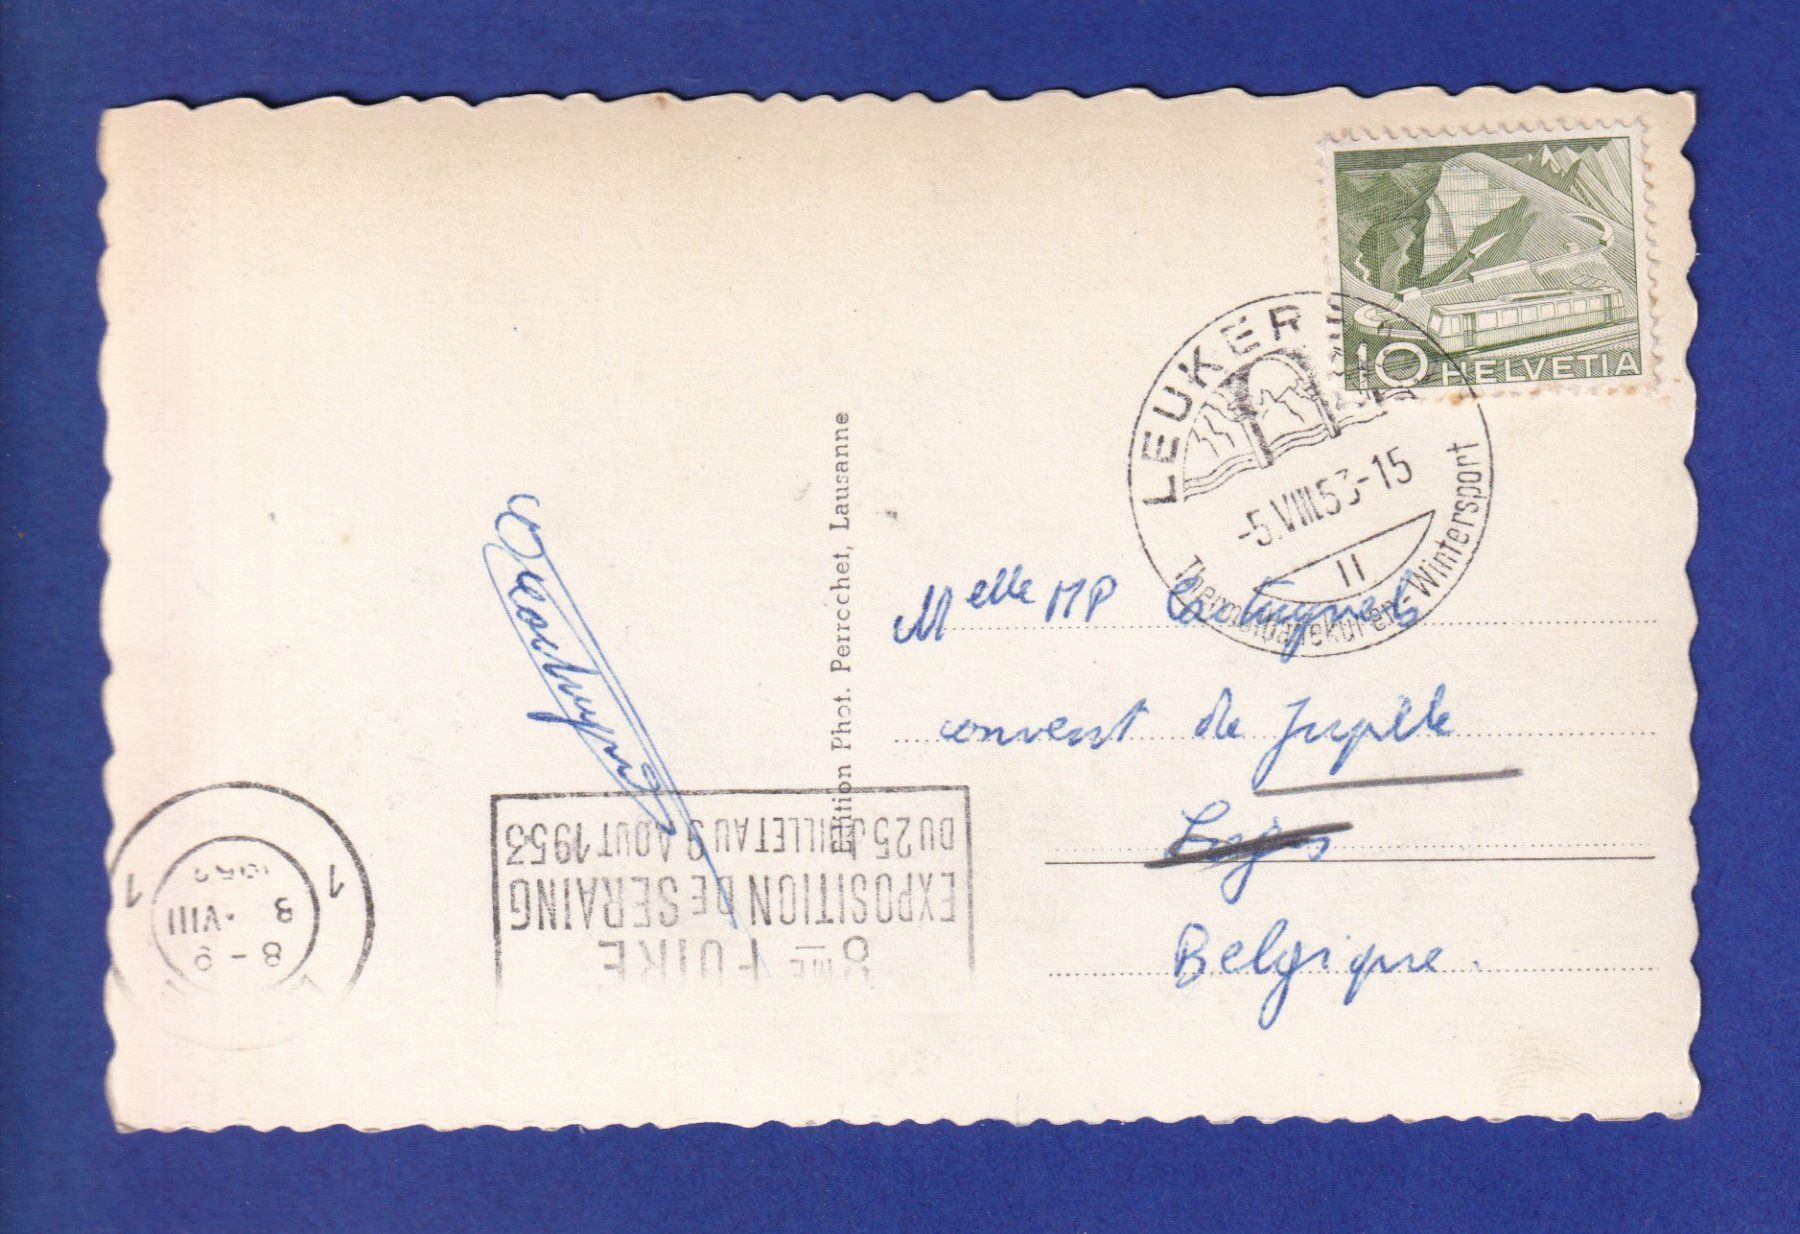 10 HELVETIA
LEUKER
-5.VIII.53-15
II
Thermalbadekuren-Wintersport
Edition Phot. Perrochet, Lausanne
Melle MP
couvent de Jupille
Belgique.
8ME FOIRE
EXPOSITION DE SERAING
DU 25 JUILLET AU 9 AOUT 1953
1 1
8-9
8 ·VIII